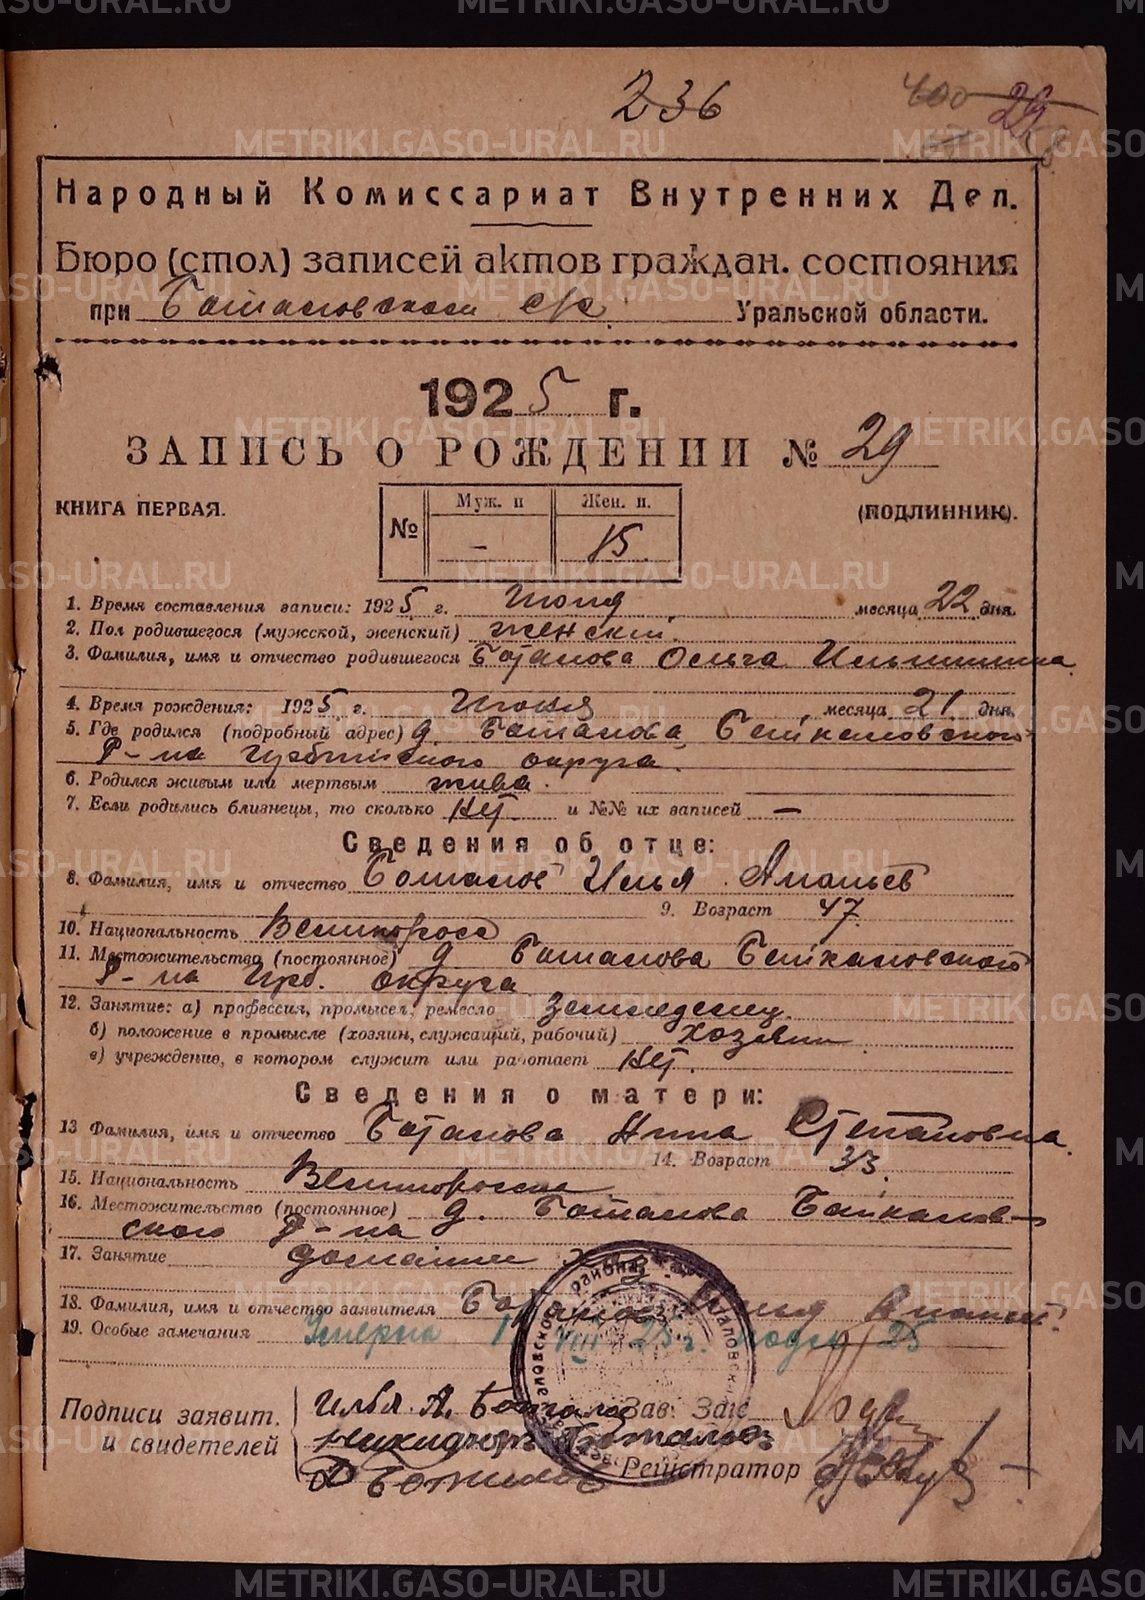 METRIKI.GASO-URAL.RU
236
400 29
Народный Комиссариат Внутренних Дел.
Бюро (стол) записей актов граждан. состояния
при Боталовском с/с. Уральской области.
1925 г.
ЗАПИСЬ О РОЖДЕНИИ № 29
КНИГА ПЕРВАЯ.
(ПОДЛИННИК).
№ Муж. п Жен. п.
– 15.
1. Время составления записи: 1925 г. месяца 22 дня.
2. Пол родившегося (мужской, женский) женский.
3. Фамилия, имя и отчество родившегося Боталова Ольга Ильинишна
4. Время рождения: 1925 г. месяца 21 дня.
5. Где родился (подробный адрес) д. Боталова, Байкаловского
Р-на Ирбитского округа.
6. Родился живым или мертвым жива.
7. Если родились близнецы, то сколько нет. и №№ их записей –
Сведения об отце:
8. Фамилия, имя и отчество Боталов Илья
9. Возраст 47
10. Национальность Великоросс
11. Местожительство (постоянное) д Боталова Байкаловского
Р-на Ирб. округа
12. Занятие: а) профессия, промысел, ремесло земледелец.
б) положение в промысле (хозяин, служащий, рабочий) хозяин
в) учреждение, в котором служит или работает нет.
Сведения о матери:
13 Фамилия, имя и отчество Боталова Анна Степановна
14. Возраст 33
15. Национальность
16. Местожительство (постоянное) д. Боталова Байкалов-
ского Р-на
17. Занятие домашн хоз.
18. Фамилия, имя и отчество заявителя Боталов Илья
19. Особые замечания Умерла 1 VIII 25 г.
Подписи заявит.
и свидетелей
Илья А. Боталов
Боталов
Зав. Загс
Регистратор